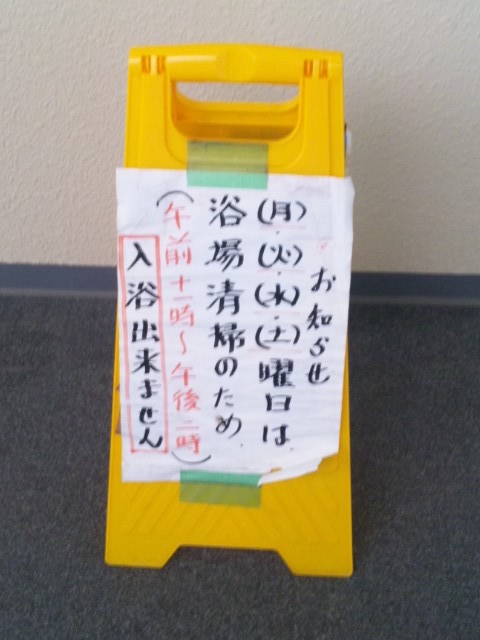 お知らせ
(月)・(火)・(水)・(土)曜日は
浴場清掃のため
(午前十一時〜午後二時)
入浴出来ません